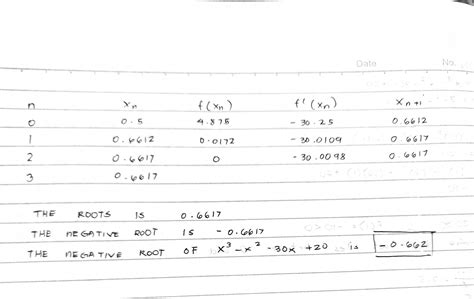 Date No.
n xₙ f(xₙ) f'(xₙ) xₙ₊₁
0 0.5 4.875 -30.25 0.6612
1 0.6612 0.0172 -30.0109 0.6617
2 0.6617 0 -30.0098 0.6617
3 0.6617
THE ROOTS IS 0.6617
THE NEGATIVE ROOT IS -0.6617
THE NEGATIVE ROOT OF x³-x²-30x+20 is -0.662